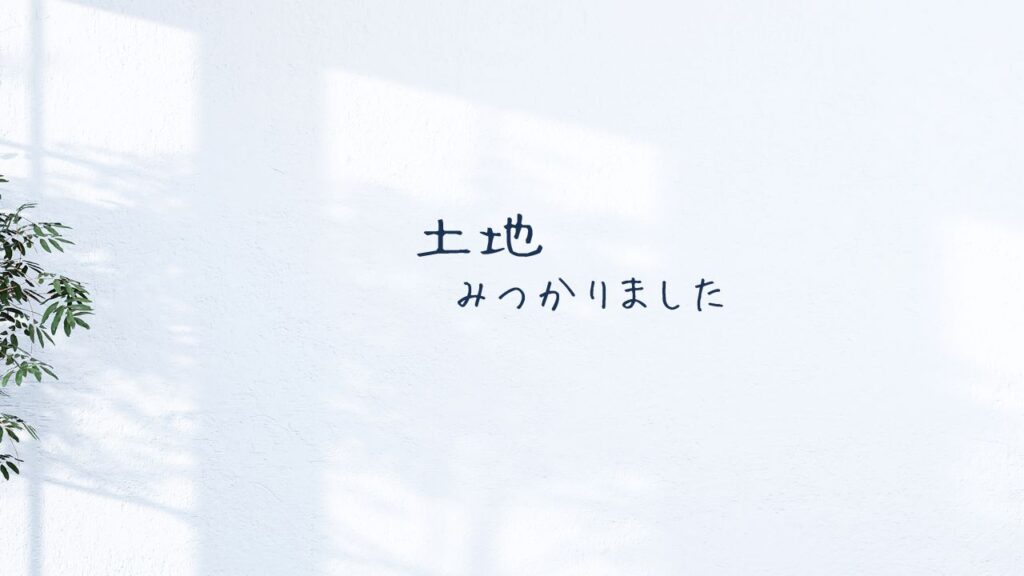 土地
みつかりました